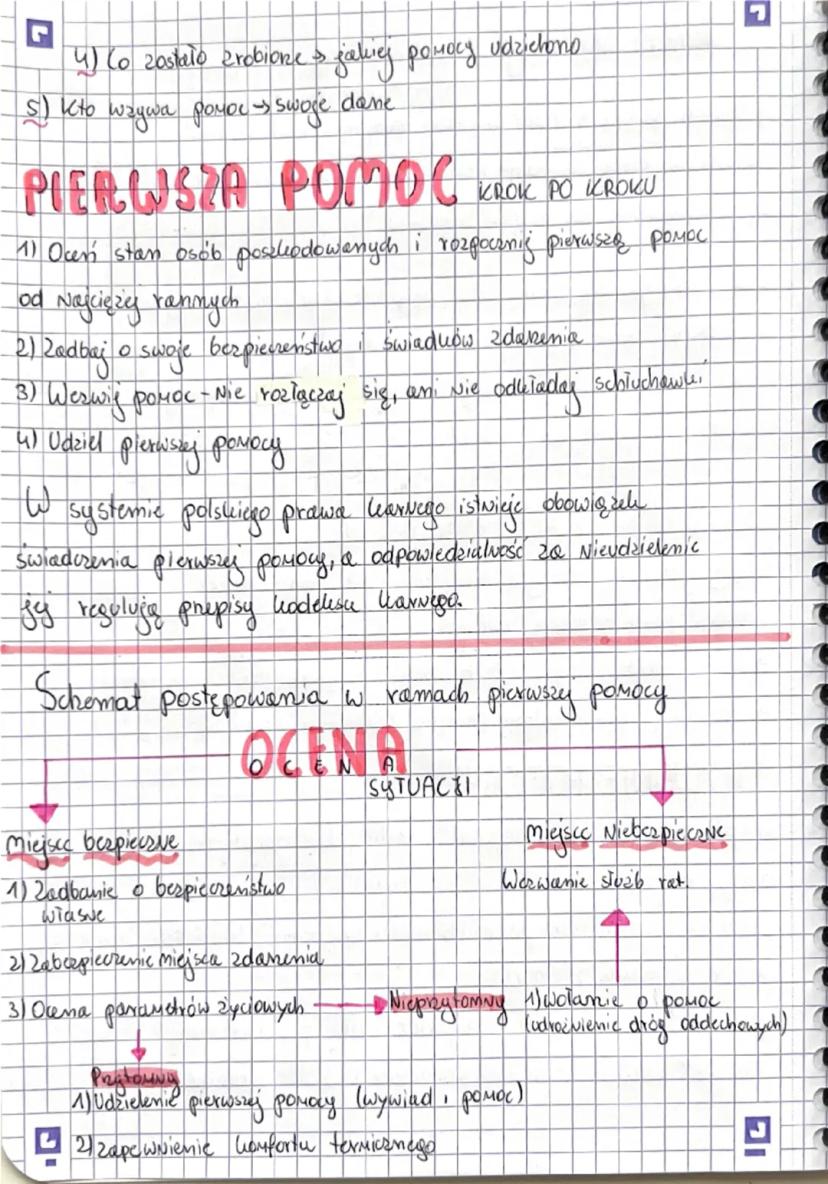 4) Co zostało zrobione → jakiej pomocy udzielono
5) Kto wzywa pomoc → swoje dane
PIERWSZA POMOC KROK PO KROKU
1) Oceń stan osób poszkodowanych i rozpocznij pierwszą pomoc
od najciężej rannych
2) Zadbaj o swoje bezpieczeństwo i świadków zdarzenia
3) Wezwij pomoc - Nie rozłączaj się, ani nie odkładaj schłuchawki
4) Udziel pierwszej pomocy
W systemie polskiego prawa karnego istnieje obowiązek
świadczenia pierwszej pomocy, a odpowiedzialność za nieudzielenie
jej regulują przepisy kodeksu karnego.
Schemat postępowania w ramach pierwszej pomocy
OCENA
OCENA
SYTUACJI
Miejsce bezpieczne
Miejsce Niebezpieczne
1) Zadbanie o bezpieczeństwo
własne
Wezwanie służb rat.
2) Zabezpieczenie miejsca zdarzenia
3) Ocena parametrów życiowych → Nieprzytomny 1) wołanie o pomoc
(udrożnienie dróg oddechowych)
Przytomny
1) Udzielenie pierwszej pomocy (wywiad i pomoc)
2) zapewnienie komfortu termicznego